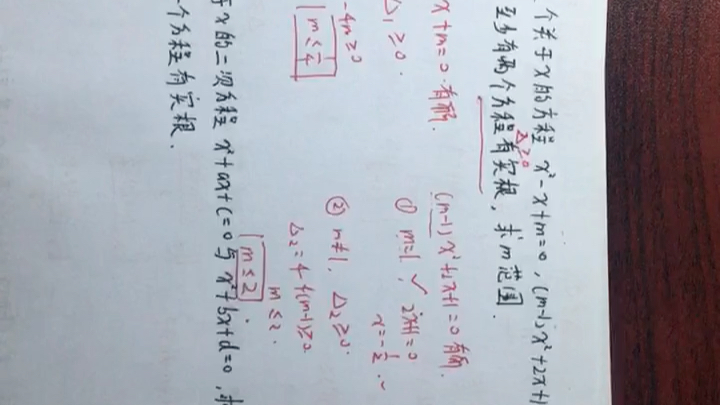 个关于x的方程 x²-x+m=0, (m-1)x²+2x+1
至少有两个方程有实根, 求m范围.
Δ≥0
x+m=0 有解.
Δ₁≥0.
-4m≥0
m≤1/4
(m-1)x²+2x+1=0 有解.
① m=1, ✓ 2x+1=0
x=-1/2.
② m≠1, Δ₂≥0.
Δ₂=4-4(m-1)≥0.
m≤2.
m≤2
x的二次方程 x²+ax+c=0与x²+bx+d=0,
个方程有实根.